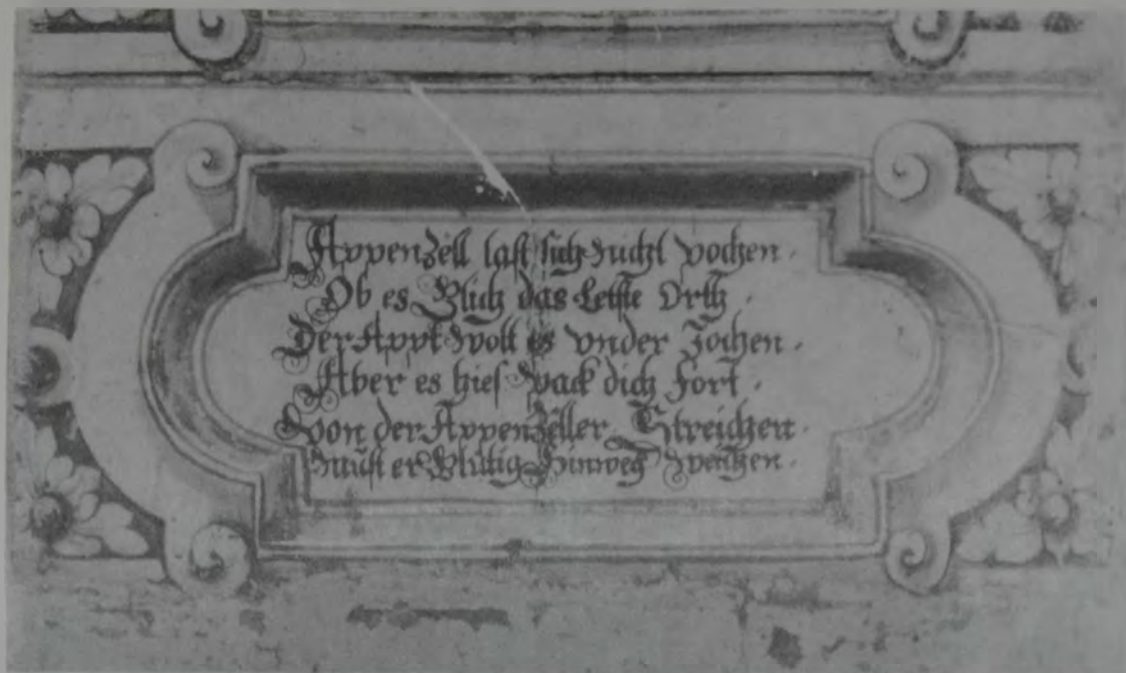 Appenzell last sich nicht pochen.
Ob es Glich das Letste Orth.
Der Appt wolt es vnder Jochen.
Aber es hies pack dich Fort.
Von der Appenzeller Streichen.
must er Blutig Hinweg weichen.